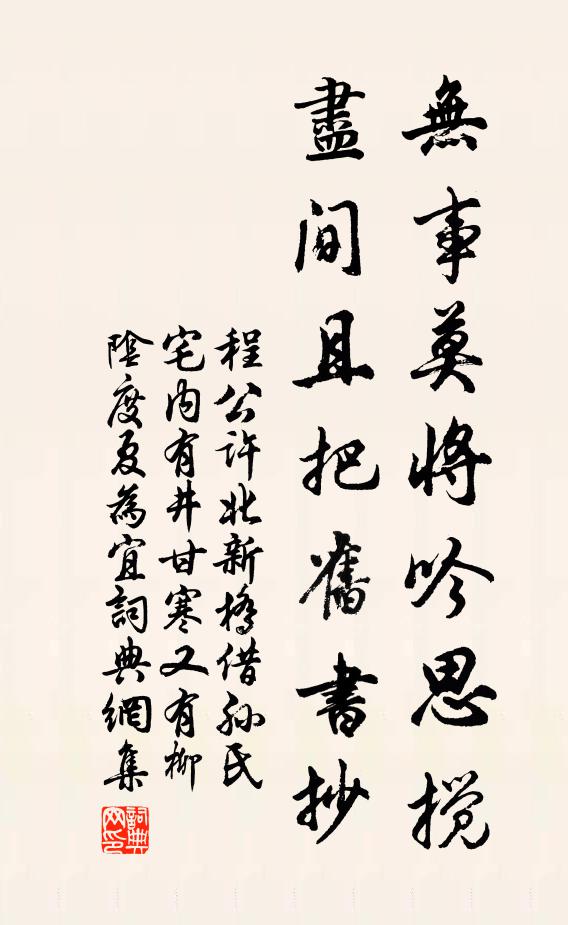 無事莫將吟思攪
盡間且把舊書抄
程公許北新橋借孫氏
宅内有井甘寒又有柳
陰度夏為宜詞典網集
詞典
网印